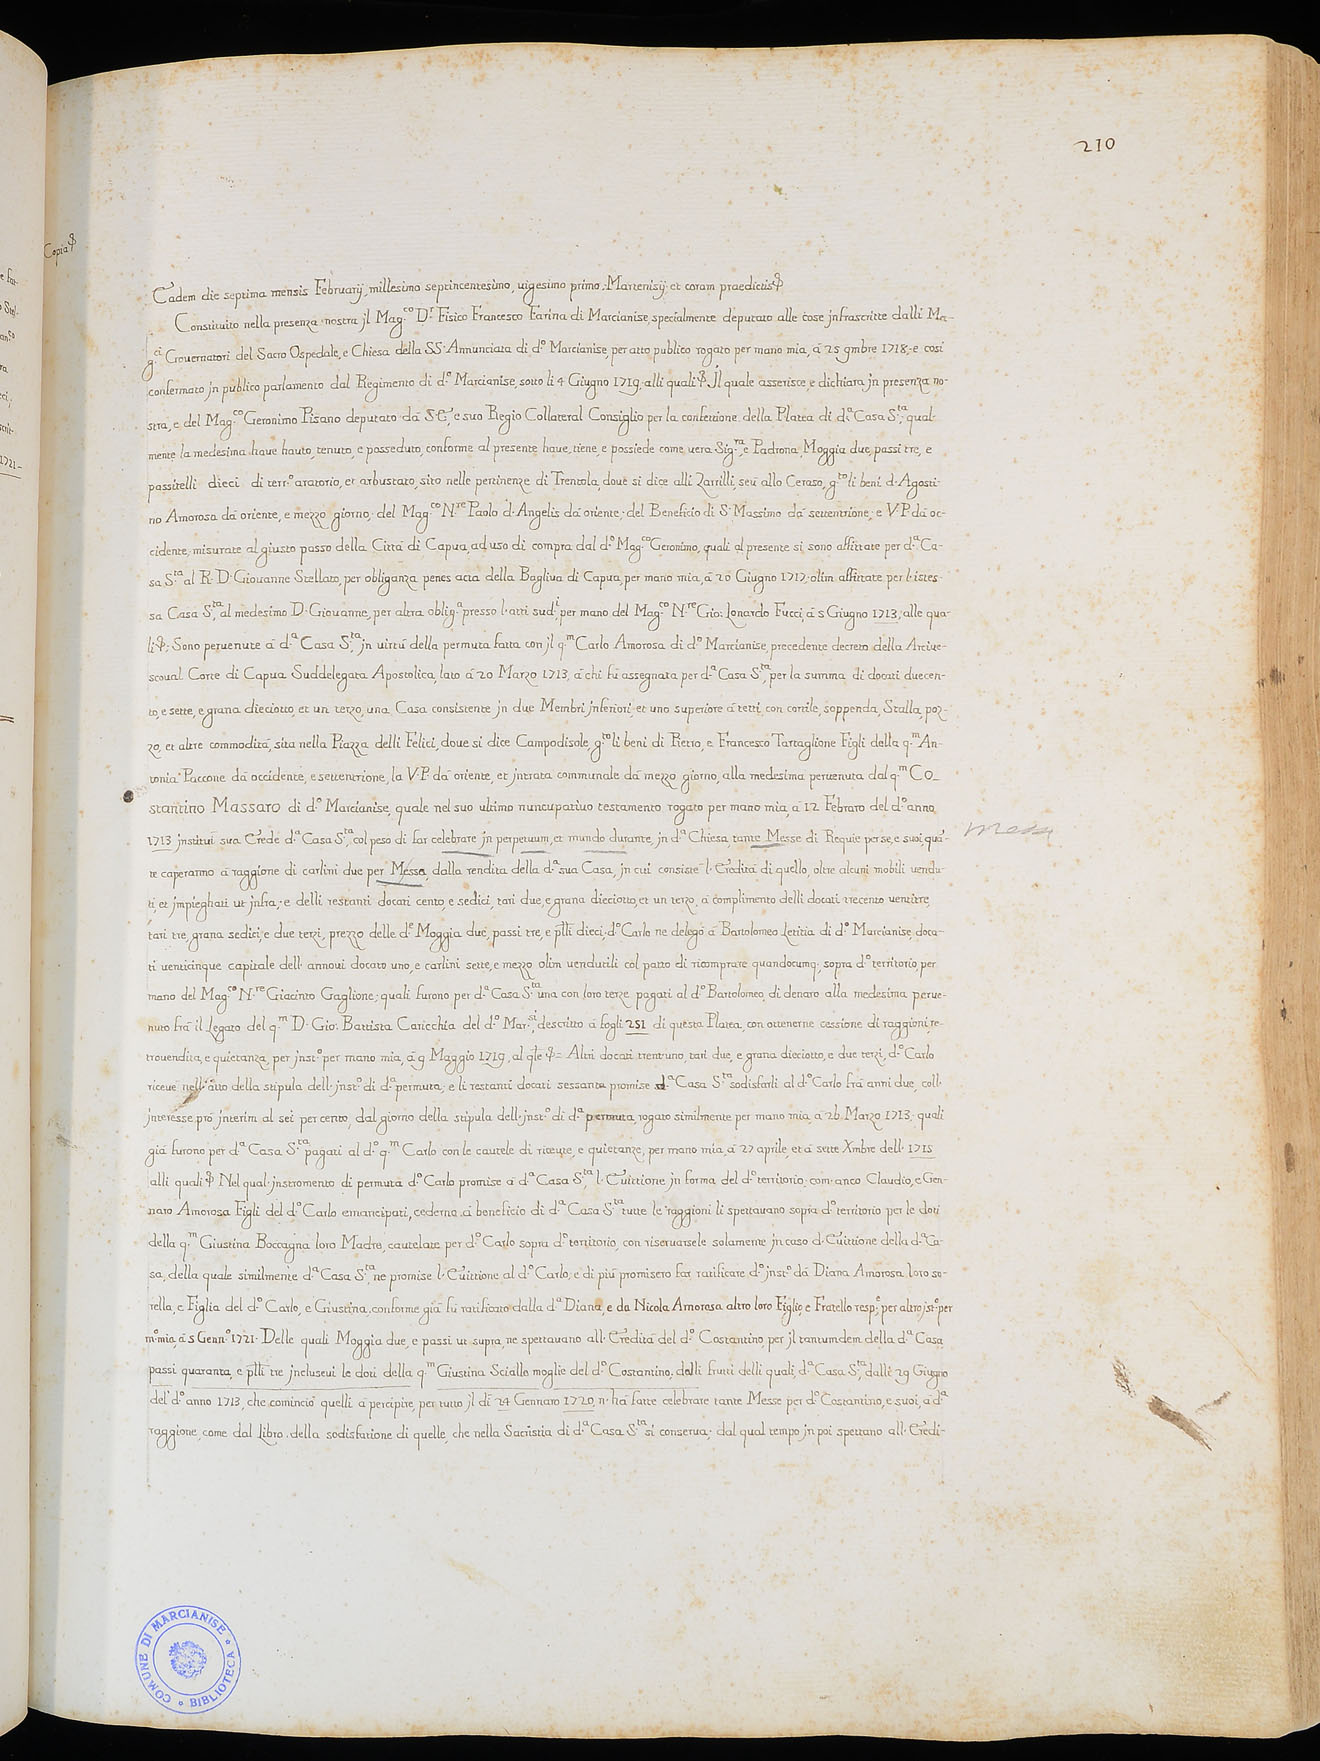 210
Copia
Eadem die septima mensis Februarij, millesimo septincentesimo, uigesimo primo, Martenisij et coram praedictis
Constituito nella presenza nostra jl Mag.co D.r Fisico Francesco Farina di Marcianise, specialmente deputato alle cose jnfrascritte dalli Ma-
g.ci Gouernatori del Sacro Ospedale, e Chiesa della SS. Annunciata di d.o Marcianise, per atto publico rogato per mano mia, à 25 9mbre 1718, e così
confermato jn publico parlamento dal Regimento di d.o Marcianise, sotto li 4 Giugno 1719, alli quali Jl quale asserisce, e dichiara jn presenza no-
stra, e del Mag.co Geronimo Pisano deputato dà S.E., e suo Regio Collateral Consiglio per la confettione della Platea di d.a Casa S.ta, qual-
mente la medesima haue hauto, tenuto, e posseduto, conforme al presente haue, tiene, e possiede come uera Sig.ra, e Padrona, Moggia due, passi tre, e
passitelli dieci di terr.o aratorio, et arbustato, sito nelle pertinenze di Trentola, doue si dice alli Zarrilli, seù allo Ceraso, g.to li beni d'Agosti-
no Amorosa dà oriente, e mezzo giorno, del Mag.co N.re Paolo d'Angelis dà oriente, del Beneficio di S. Massimo dà settentrione, e V.P. dà oc-
cidente, misurate al giusto passo della Città di Capua, ad uso di compra dal d.o Mag.co Geronimo, quali al presente si sono affittate per d.a Ca-
sa S.ta al R. D. Giouanne Stellato, per obliganza penes acta della Bagliua di Capua, per mano mia, à 20 Giugno 1717, olim affittate per l'istes-
sa Casa S.ta al medesimo D. Giouanne, per altra oblig.a presso l'atti sud.i, per mano del Mag.co N.re Gio: Lonardo Fucci, à 5 Giugno 1713, alle qua-
li; Sono peruenute à d.a Casa S.ta, jn uirtù della permuta fatta con jl q.m Carlo Amorosa di d.o Marcianise, precedente decreto della Arciue-
scoual Corte di Capua Suddelegata Apostolica, lato à 20 Marzo 1713, à chi fù assegnata per d.a Casa S.ta, per la summa di docati duecen-
to, e sette, e grana dieciotto, et un terzo, una Casa consistente jn due Membri jnferiori, et uno superiore à tetti, con cortile, soppenda, Stalla, poz-
zo, et altre commodità, sita nella Piazza delli Felici, doue si dice Campodisole, g.to li beni di Pietro, e Francesco Tartaglione Figli della q.m An-
tonia Paccone dà occidente, e settentrione, la V.P. dà oriente, et jntrata communale dà mezzo giorno, alla medesima peruenuta dal q.m Co-
stantino Massaro di d.o Marcianise, quale nel suo ultimo nuncupatiuo testamento rogato per mano mia, à 12 Febraro del d.o anno
1713 jnstituì sua Erede d.a Casa S.ta, col peso di far celebrare jn perpetuum, et mundo durante, jn d.a Chiesa, tante Messe di Requie per se, e suoi, quā-
te caperanno à raggione di carlini due per Messa, dalla rendita della d.a sua Casa, jn cui consiste l'Eredità di quello, oltre alcuni mobili uendu-
ti, et jmpieghati ut jnfra; e delli restanti docati cento, e sedici, tarì due, e grana dieciotto, et un terzo, à complimento delli docati trecento ventitre,
tarì tre, grana sedici, e due terzi, prezzo delle d.e Moggia due, passi tre, e p.lli dieci, d.o Carlo ne delegò à Bartolomeo Letitia di d.o Marcianise, doca-
ti venticinque capitale dell'annoui docato uno, e carlini sette, e mezzo olim uendutili col patto di ricomprare quandocumq., sopra d.o territorio, per
mano del Mag.co N.re Giacinto Gaglione; quali furono per d.a Casa S.ta una con loro terze pagati al d.o Bartolomeo, di denaro alla medesima perue-
nuto frà il Legato del q.m D. Gio: Battista Caricchia del d.o Mar.si, descritto à fogli 251 di questa Platea, con ottenerne cessione di raggioni, re-
trouendita, e quietanza, per jnst.o per mano mia, à 9 Maggio 1719, al q.le = Altri docati trent'uno, tarì due, e grana dieciotto, e due terzi, d.o Carlo
riceuè nell'atto della stipula dell'jnst.o di d.a permuta; e li restanti docati sessanta promise d.a Casa S.ta sodisfarli al d.o Carlo frà anni due, coll'
jnteresse prò jnterim al sei per cento, dal giorno della stipula dell'jnst.o di d.a permuta, rogato similmente per mano mia, à 26 Marzo 1713; quali
già furono per d.a Casa S.ta pagati al d.o q.m Carlo con le cautele di riceute, e quietanze, per mano mia, à 27 aprile, et à sette Xmbre dell'1715
alli quali Nel qual jnstromento di permuta d.o Carlo promise à d.a Casa S.ta l'Euittione jn forma del d.o territorio, com'anco Claudio, e Gen-
naro Amorosa Figli del d.o Carlo emancipati, cederno à beneficio di d.a Casa S.ta tutte le raggioni li spettauano sopra d.o territorio per le doti
della q.m Giustina Boccagna loro Madre, cautelate per d.o Carlo sopra d.o territorio, con riseruarsele solamente jn caso d'Euittione della d.a Ca-
sa, della quale similmente d.a Casa S.ta ne promise l'Euittione al d.o Carlo, e di più promisero far ratificare d.o jnst.o dà Diana Amorosa loro so-
rella, e Figlia del d.o Carlo, e Giustina, conforme già fù ratificato dalla d.a Diana, e da Nicola Amorosa altro loro Figlio, e Fratello resp.e per altro jst.o per
m.o mia, à 5 Genn.o 1721. Delle quali Moggia due, e passi ut supra, ne spettauano all'Eredità del d.o Costantino, per jl tantumdem della d.a Casa
passi quaranta, e p.lli tre jnclusiui le doti della q.m Giustina Sciallo moglie del d.o Costantino, dalli frutti delli quali, d.a Casa S.ta, dalli 29 Giugno
del d.o anno 1713, che cominciò quelli à percipire, per tutto jl dì 24 Gennaro 1720, n'hà fatte celebrare tante Messe per d.o Costantino, e suoi, à d.a
raggione, come dal Libro della sodisfatione di quelle, che nella Sacristia di d.a Casa S.ta si conserua; dal qual tempo jn poi spettano all'Eredi-
COMUNE DI MARCIANISE
BIBLIOTECA